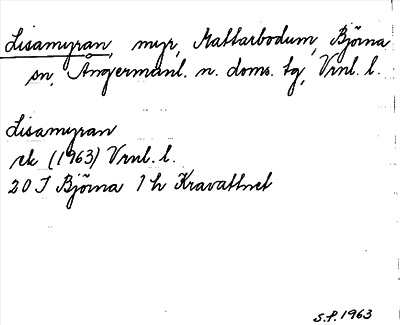 Lisamyran, myr, Mattarbodum, Björna
sn, Ångermanl. n. doms. tg, Vrnl. l.
Lisamyran
rk (1963) Vrnl. l.
20 I Björna 1 h Kravattnet
S.P. 1963